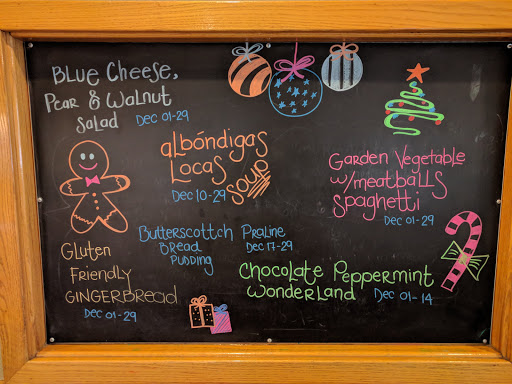 Blue Cheese,
Pear & Walnut
Salad Dec 01-29
albóndigas
Locas
soup
Dec 10-29
Garden Vegetable
w/meatballs
spaghetti
Dec 01-29
Butterscottch Praline
Bread Dec 17-29
Pudding
Gluten
Friendly
Gingerbread
Dec 01-29
Chocolate Peppermint
Wonderland Dec 01-14